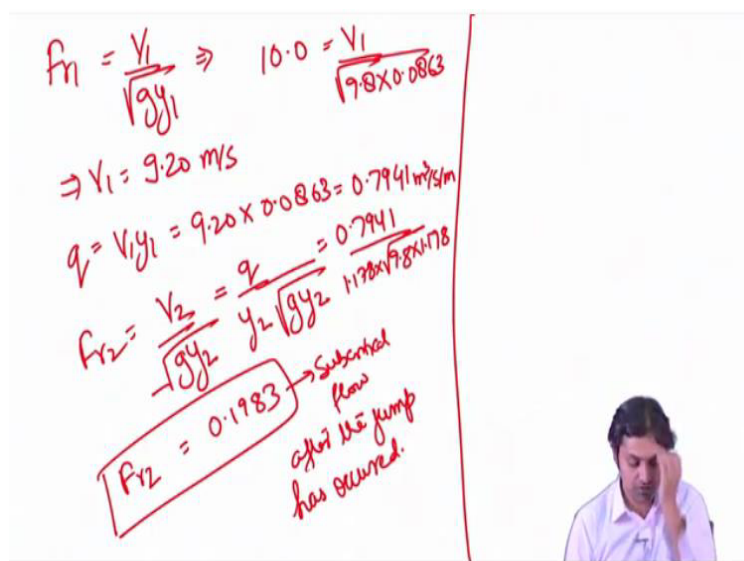 Fr1 = V1/√gy1 ⇒ 10.0 = V1/√9.8×0.0863
⇒ V1 = 9.20 m/s
q = V1y1 = 9.20 × 0.0863 = 0.7941 m³/s/m
Fr2 = V2/√gy2 = q/y2√gy2 = 0.7941/1.178×√9.8×1.178
Fr2 = 0.1983 → Subcritical
flow
after the jump
has occured.